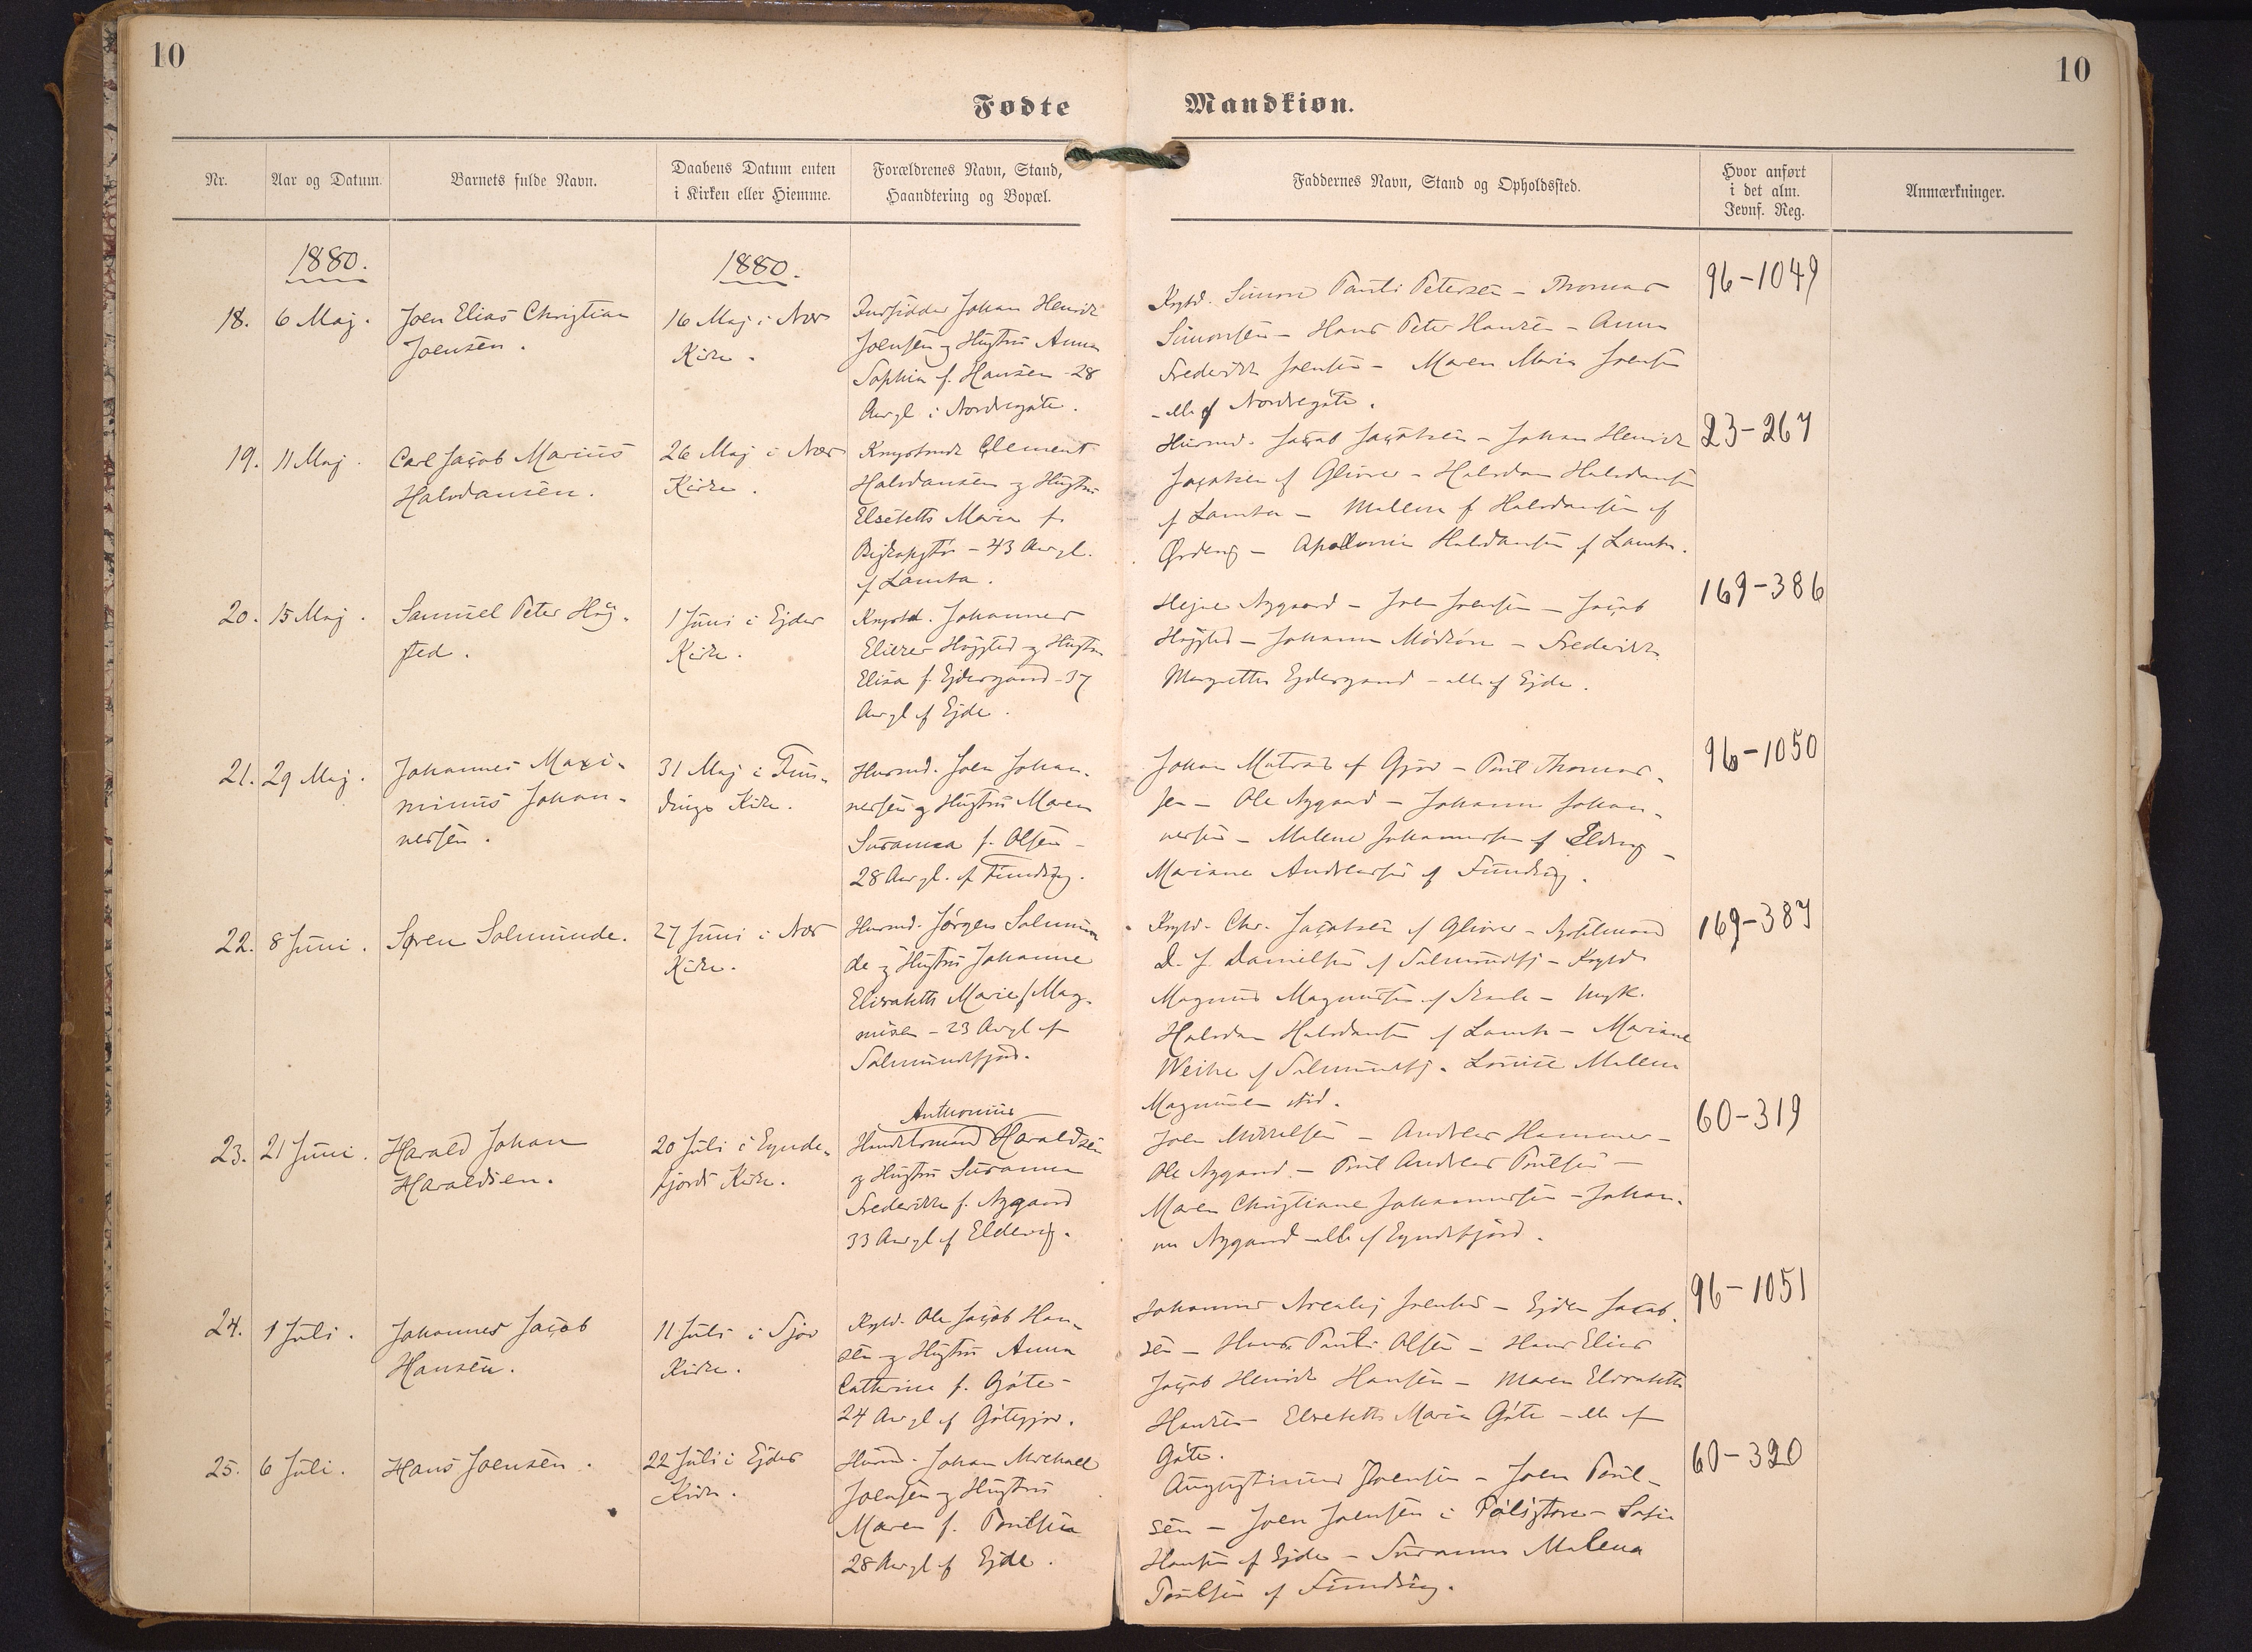 10
10
Fødte
Mandkiøn.
Nr.
Aar og Datum.
Barnets fulde Navn.
Daabens Datum enten
i Kirken eller Hiemme.
Forældrenes Navn, Stand,
Haandtering og Bopæl.
Faddernes Navn, Stand og Opholdssted.
Hvor anført
i det alm.
Jevnf. Reg.
Anmærkninger.
1880.
1880.
18. 6 Maj.
Joen Elias Christian
Joensen.
16 Maj i Næs
Kirke.
Indsidder Johan Henrik
Joensen og Hustru Anna
Sophia f. Hansen - 28
Aar gl i Nordregöte.
Simon Pauli Petersen - Thomas
Simonsen - Hans Peter Hansen - Anna
Frederikke Joensen - Maren Maria Joensen
- alle af Nordregöte.
96-1049
19. 11 Maj.
Carl Jacob Marius
Halvdansen.
26 Maj i Næs
Kirke.
Clement
Halvdansen og Hustru
Elsebeth Maria f.
Biskopstø - 43 Aar gl.
af Lamba.
Husmd. Jacob Jacobsen - Johan Henrik
Jacobsen af Glivrer - Halvdan Halvdansen
af Lamba - Malene f Halvdansen af
- Apollonia Haldansen af Lamba.
23-267
20. 15 Maj.
Samuel Peter Høj-
sted.
1 Juni i Ejde
Kirke.
Johannes
Elieser Højsted og Hustru
Elisa f. Ejdesgaard - 37
Aar gl af Ejde.
Hejne Nygaard - Joen Joensen - Jacob
Højsted - Johanna Mörköre - Frederikke
Margrethe Ejdesgaard - alle af Ejde.
169-386
21. 29 Maj.
Johannes Maxi-
minus Johan-
nesen.
31 Maj i Fun-
dings Kirke.
Husmd. Joen Johan-
nesen og Hustru Maren
Susanna f. Olsen -
28 Aar gl. af Funding.
Johan Matras af Gjov - Poul Thomas-
sen - Ole Nygaard - Johanna Johan-
nesen - Malene Johannesen af Eldevig -
Mariane Andreasen af Funding.
96-1050
22. 8 Juni.
Søren Solmunde.
27 Juni i Næs
Kirke.
Husmd. Jørgen Solmun
de og Hustru Johanne
Elisabeth Marie f Mag-
nusen - 23 Aar gl af
Solmundefjord.
Chr. Jacobsen af Glivrer -
D. J. Danielsen af Solmundefj -
Magnus Magnussen af Skaale - Ungk.
Halvdan Halvdansen af Lamba - Mariane
Weihe af Solmundefj. Louise Malene
Magnusen ibid.
169-387
Anthonius
23. 21 Juni.
Harald Johan
Haraldsen.
20 Juli i Eynde-
fjords Kirke.
Handelsmand Haraldsen
og Hustru Susanna
Frederikke f. Nygaard
33 Aar gl af Eldevig.
Joen Mikkelsen - Andreas Hammer -
Ole Nygaard - Poul Andreas Poulsen -
Maren Christiane Johannesen - Johan-
na Nygaard - alle af Eyndefjord.
60-319
24. 1 Juli.
Johannes Jacob
Hansen.
11 Juli i Gjov
Kirke.
Ole Jacob Han-
sen og Hustru Anna
Cathrina f. Göte -
24 Aar gl af Götegjov.
Johannes Joensen - Ejden Jacob-
sen - Hans Pauli Olsen - Hans Elias
Jacob Henrik Hansen - Maren Elisabeth
Hansen - Elsebeth Maria Göte - alle af
Göte.
96-1051
25. 6 Juli.
Hans Joensen.
22 Juli i Ejde
Kirke.
Husmd. Johan Michael
Joensen og Hustru
Maren f. Poulsen
28 Aar gl af Ejde.
Augustinus Joensen - Joen Poul-
sen - Joen Joensen i - Sofie
Hansen af Ejde - Susanna Malena
Poulsen af Funding.
60-320